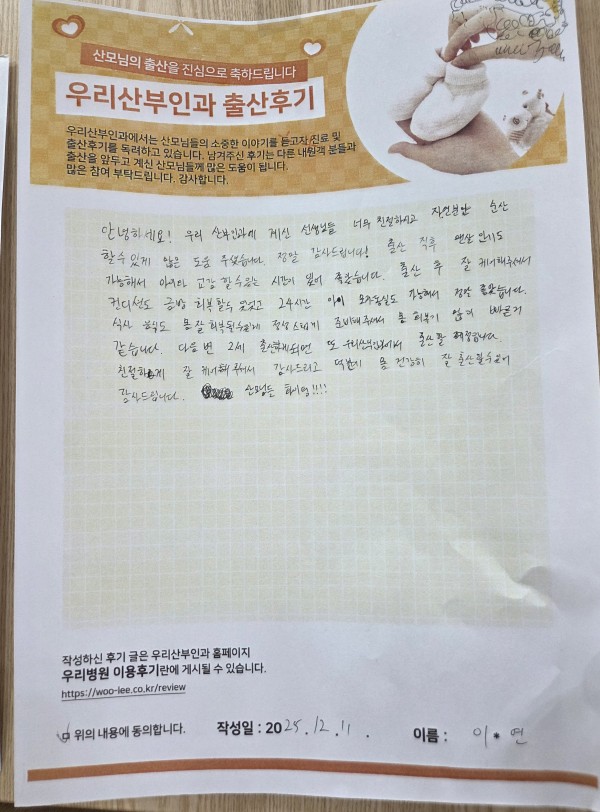 산모님의 출산을 진심으로 축하드립니다
우리산부인과 출산후기
우리산부인과에서는 산모님들의 소중한 이야기를 듣고자 진료 및
출산후기를 독려하고 있습니다. 남겨주신 후기는 다른 내원객 분들과
출산을 앞두고 계신 산모님들께 많은 도움이 됩니다.
많은 참여 부탁드립니다. 감사합니다.
안녕하세요! 우리 산부인과에 계신 선생님들 너무 친절하시고 자연분만 순산
할수 있게 많은 도움 주셨습니다. 정말 감사드립니다! 출산 직후 맨살 안기도
가능해서 아이와 교감 할수있는 시간이 있어 좋았습니다. 출산 후 잘 케어해주셔서
컨디션도 금방 회복할수 있었고 24시간 아이 모자동실도 가능해서 정말 좋았습니다.
식사 음식도 몸 잘 회복될수있게 정성스레게 준비해주셔서 몸 회복이 더 빠른거
같습니다. 다음번 2세 출산하게되면 또 우리산부인과에서 출산할 예정입니다.
친절하게 잘 케어해 주셔서 감사드리고 덕분에 몸 건강히 잘 출산할수있어
감사드립니다. 산모님들 화이팅!!!!
작성하신 후기 글은 우리산부인과 홈페이지
우리병원 이용후기란에 게시될 수 있습니다.
https://woo-lee.co.kr/review
위의 내용에 동의합니다. 작성일 : 2025.12.11. 이름 : 이*연